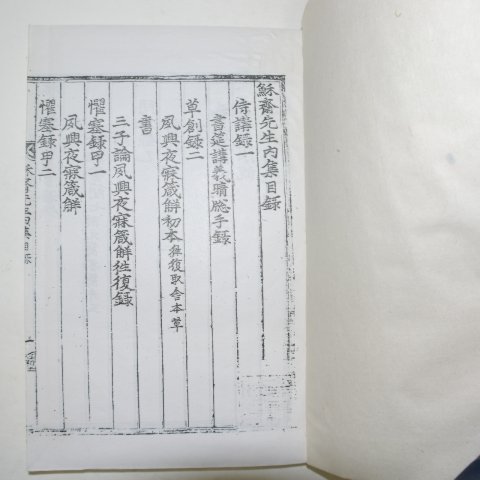 穌齋先生內集目錄
侍講錄一
書筵講義晴窓手錄
草創錄二
夙興夜寐箴解初本 往復取舍本草
書
三子論夙興夜寐箴解徃復錄
懼塞錄甲一
夙興夜寐箴解
懼塞錄甲二
穌齋先生內集目錄
一